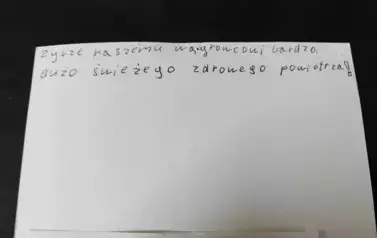 życzę naszemu wągrowcowi bardzo
dużo świeżego zdrowego powietrza!